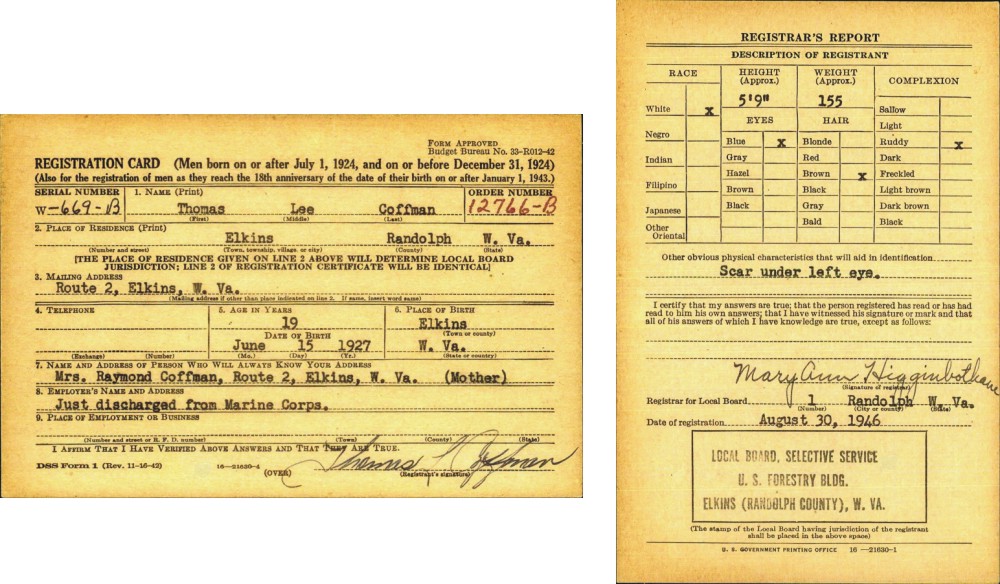 FORM APPROVED
Budget Bureau No. 33-R012-42
REGISTRATION CARD (Men born on or after July 1, 1924, and on or before December 31, 1924)
(Also for the registration of men as they reach the 18th anniversary of the date of their birth on or after January 1, 1943.)
SERIAL NUMBER 1. NAME (Print) ORDER NUMBER
W-669-B Thomas Lee Coffman 12766-B
(First) (Middle) (Last)
2. PLACE OF RESIDENCE (Print)
Elkins Randolph W. Va.
(Number and street) (Town, township, village, or city) (County) (State)
[THE PLACE OF RESIDENCE GIVEN ON LINE 2 ABOVE WILL DETERMINE LOCAL BOARD
JURISDICTION; LINE 2 OF REGISTRATION CERTIFICATE WILL BE IDENTICAL]
3. MAILING ADDRESS
Route 2, Elkins, W. Va.
(Mailing address if other than place indicated on line 2. If same, insert word same)
4. TELEPHONE 5. AGE IN YEARS 6. PLACE OF BIRTH
19 Elkins
DATE OF BIRTH (Town or county)
June 15 1927 W. Va.
(Exchange) (Number) (Mo.) (Day) (Yr.) (State or country)
7. NAME AND ADDRESS OF PERSON WHO WILL ALWAYS KNOW YOUR ADDRESS
Mrs. Raymond Coffman, Route 2, Elkins, W. Va. (Mother)
8. EMPLOYER'S NAME AND ADDRESS
Just discharged from Marine Corps.
9. PLACE OF EMPLOYMENT OR BUSINESS
(Number and street or R. F. D. number) (Town) (County) (State)
I AFFIRM THAT I HAVE VERIFIED ABOVE ANSWERS AND THAT THEY ARE TRUE.
DSS Form 1 (Rev. 11-16-42) 16-21630-4 Thomas L Coffman
(OVER) (Registrant's signature)
REGISTRAR'S REPORT
DESCRIPTION OF REGISTRANT
RACE HEIGHT (Approx.) WEIGHT (Approx.) COMPLEXION
5'9" 155
White x Sallow
EYES HAIR Light
Negro Blue x Blonde Ruddy x
Indian Gray Red Dark
Hazel Brown x Freckled
Filipino Brown Black Light brown
Japanese Black Gray Dark brown
Other Oriental Bald Black
Other obvious physical characteristics that will aid in identification
Scar under left eye.
I certify that my answers are true; that the person registered has read or has had
read to him his own answers; that I have witnessed his signature or mark and that
all of his answers of which I have knowledge are true, except as follows:
Mary Ann Higginbotham
(Signature of registrar)
Registrar for Local Board 1 Randolph W. Va.
(Number) (City or county) (State)
Date of registration August 30, 1946
LOCAL BOARD, SELECTIVE SERVICE
U. S. FORESTRY BLDG.
ELKINS (RANDOLPH COUNTY), W. VA.
(The stamp of the Local Board having jurisdiction of the registrant
shall be placed in the above space)
U. S. GOVERNMENT PRINTING OFFICE 16—21630-1